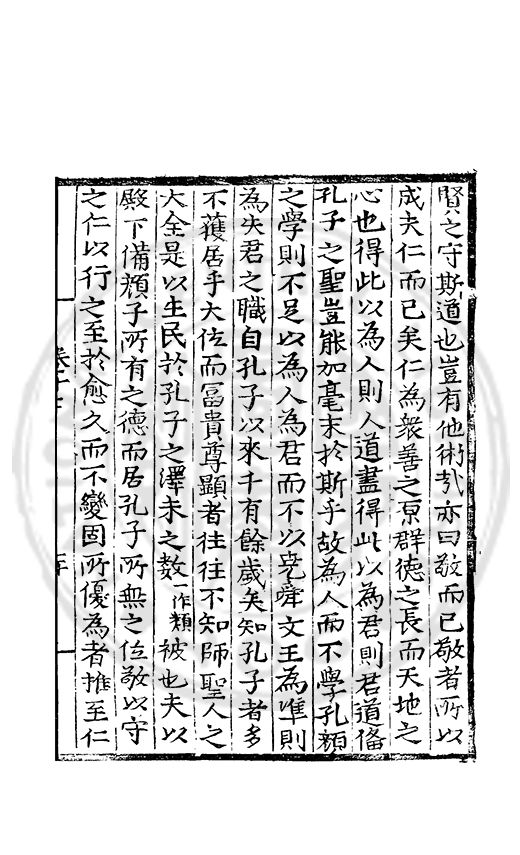 賢之守斯道也豈有他術㢤亦曰敬而已敬者所以
成夫仁而已矣仁為衆善之原群徳之長而天地之
心也得此以為人則人道盡得此以為君則君道俻
孔子之聖豈能加毫末於斯乎故為人而不學孔顔
之學則不足以為人為君而不以堯舜文王為凖則
為失君之職自孔子以來千有餘歲矣知孔子者多
不獲居乎大位而冨貴尊顯者往往不知師聖人之
大全是以生民於孔子之澤未之數一作類被也夫以
殿下備顔子所有之德而居孔子所無之位敬以守
之仁以行之至於愈久而不變固所優為者推至仁
卷十